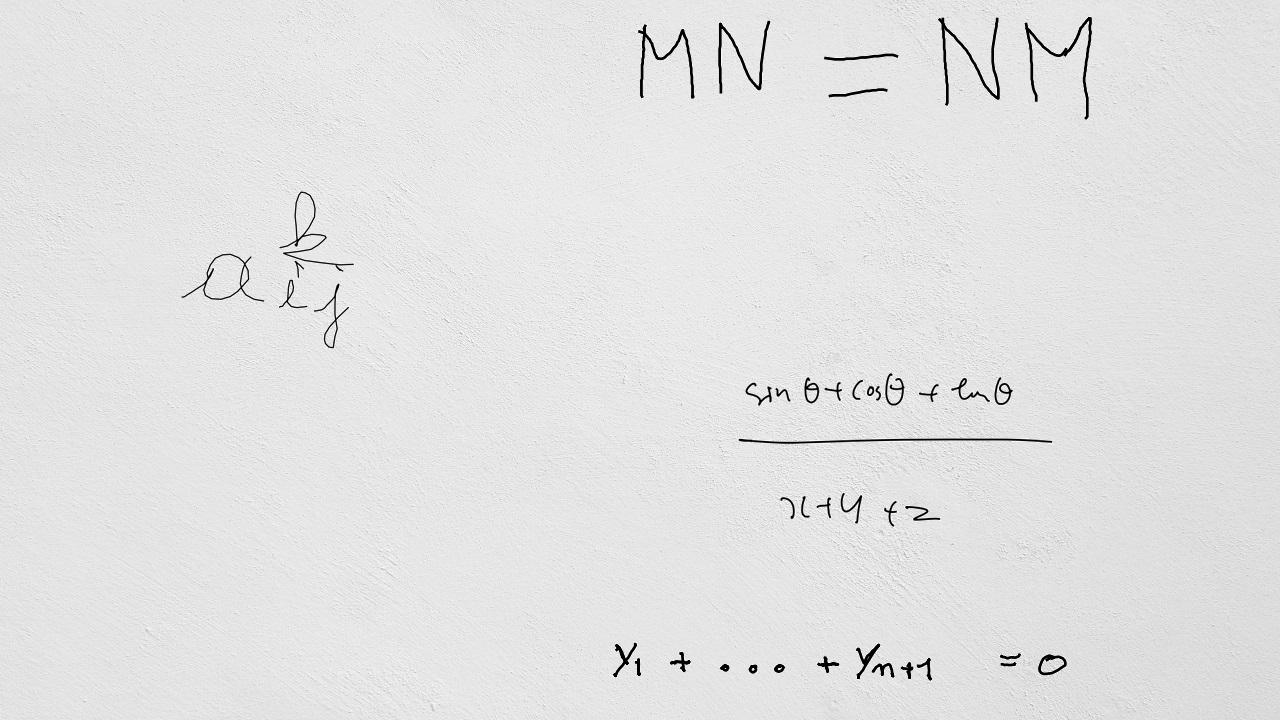 MN = NM
a_{ij}^{k}
\frac{\sin θ + \cos θ + \ln θ}{x + y + z}
y_1 + ... + y_{n+1} = 0